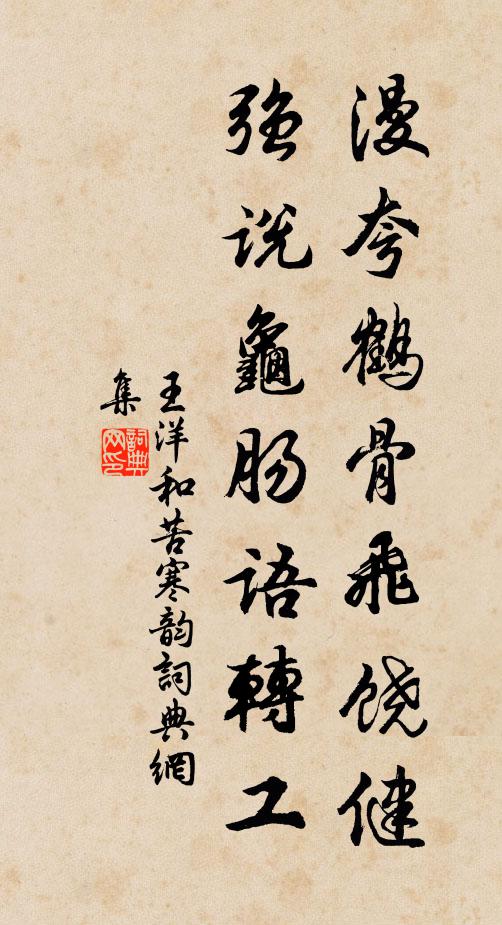 漫夸鹤骨飛饶健
强说龜肠语轉工
王洋和苦寒韵詞典網
集
詞典网印